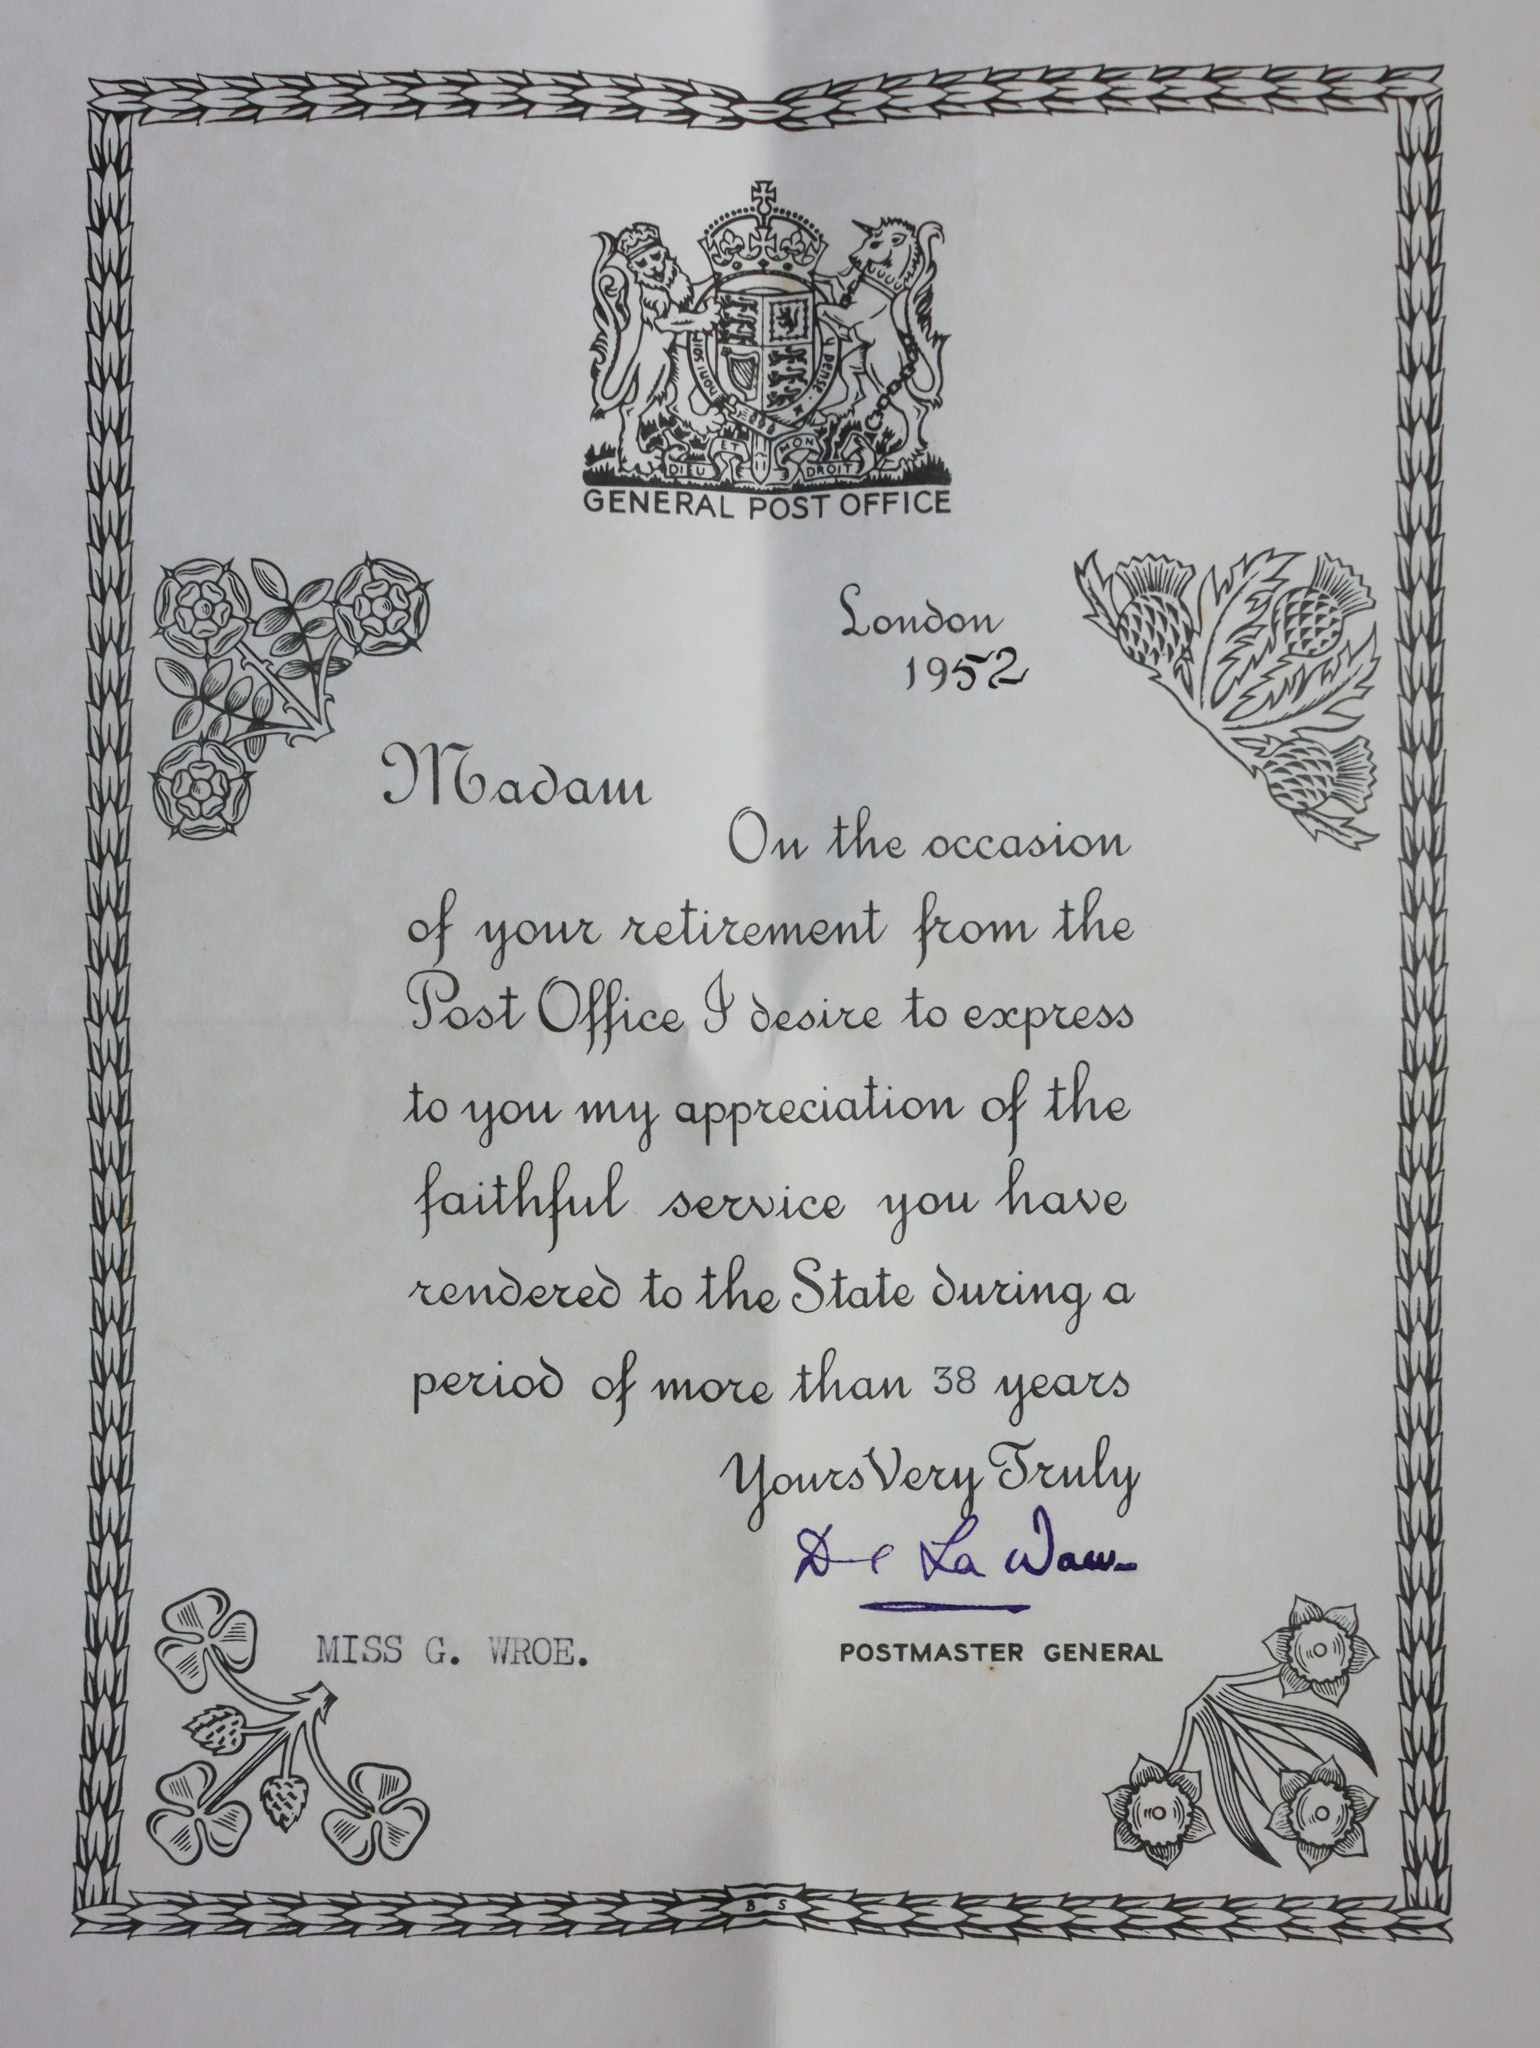 HONI SOI
Y PENSE
DIEU ET MON DROIT
GENERAL POST OFFICE
London
1952
Madam
On the occasion
of your retirement from the
Post Office I desire to express
to you my appreciation of the
faithful service you have
rendered to the State during a
period of more than 38 years
Yours Very Truly
De La Warr
POSTMASTER GENERAL
MISS G. WROE.
B S